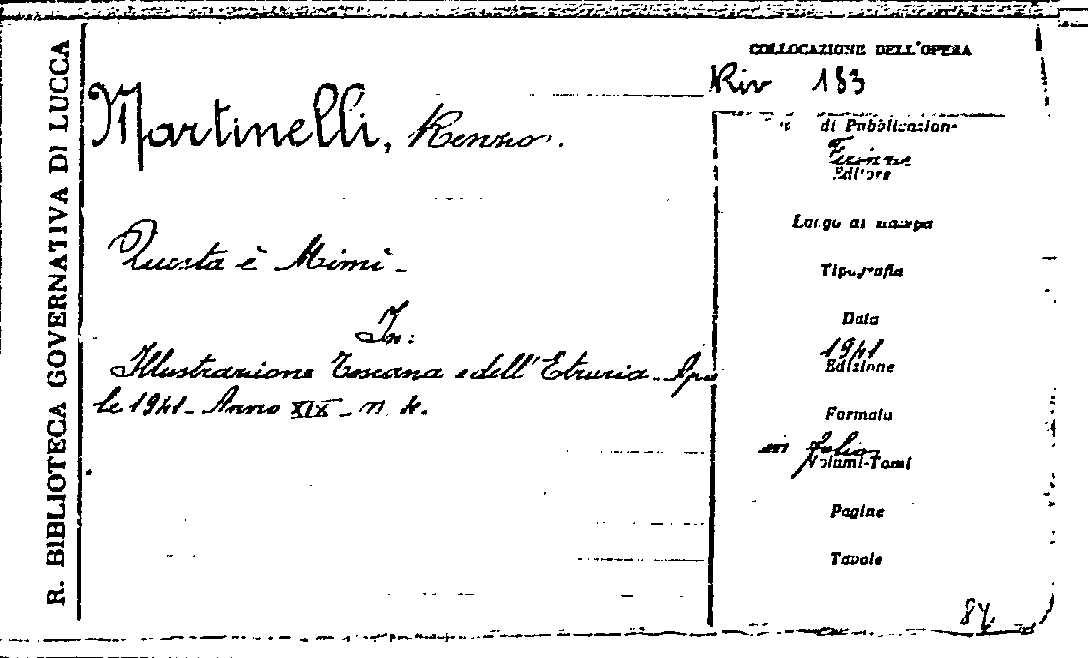 R. BIBLIOTECA GOVERNATIVA DI LUCCA
COLLOCAZIONE DELL'OPERA
Riv 183
Martinelli, Renzo.
di Pubblicazion-
Firenze
Editore
Luogo di stampa
Questa è Mimì -
Tipografia
In:
Data
1941
Illustrazione Toscana e dell'Etruria - Apri
le 1941 - Anno XIX - n. 4.
Edizione
Formato
in folio
Volumi-Tomi
Pagine
Tavole